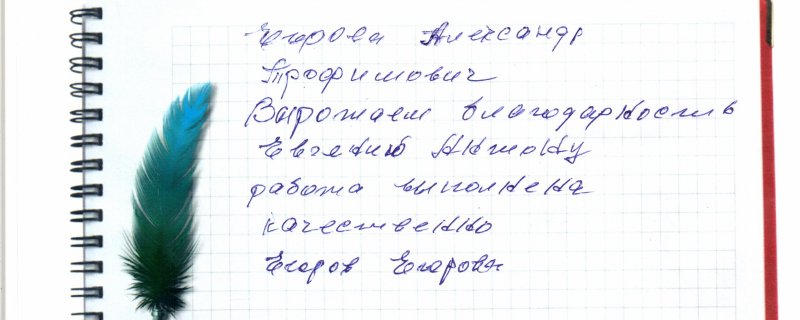 Егорова Александр
Трофимович
Выражаем благодарность
Евгений Антону
работа выполнена
качественно
Егоров Егорова